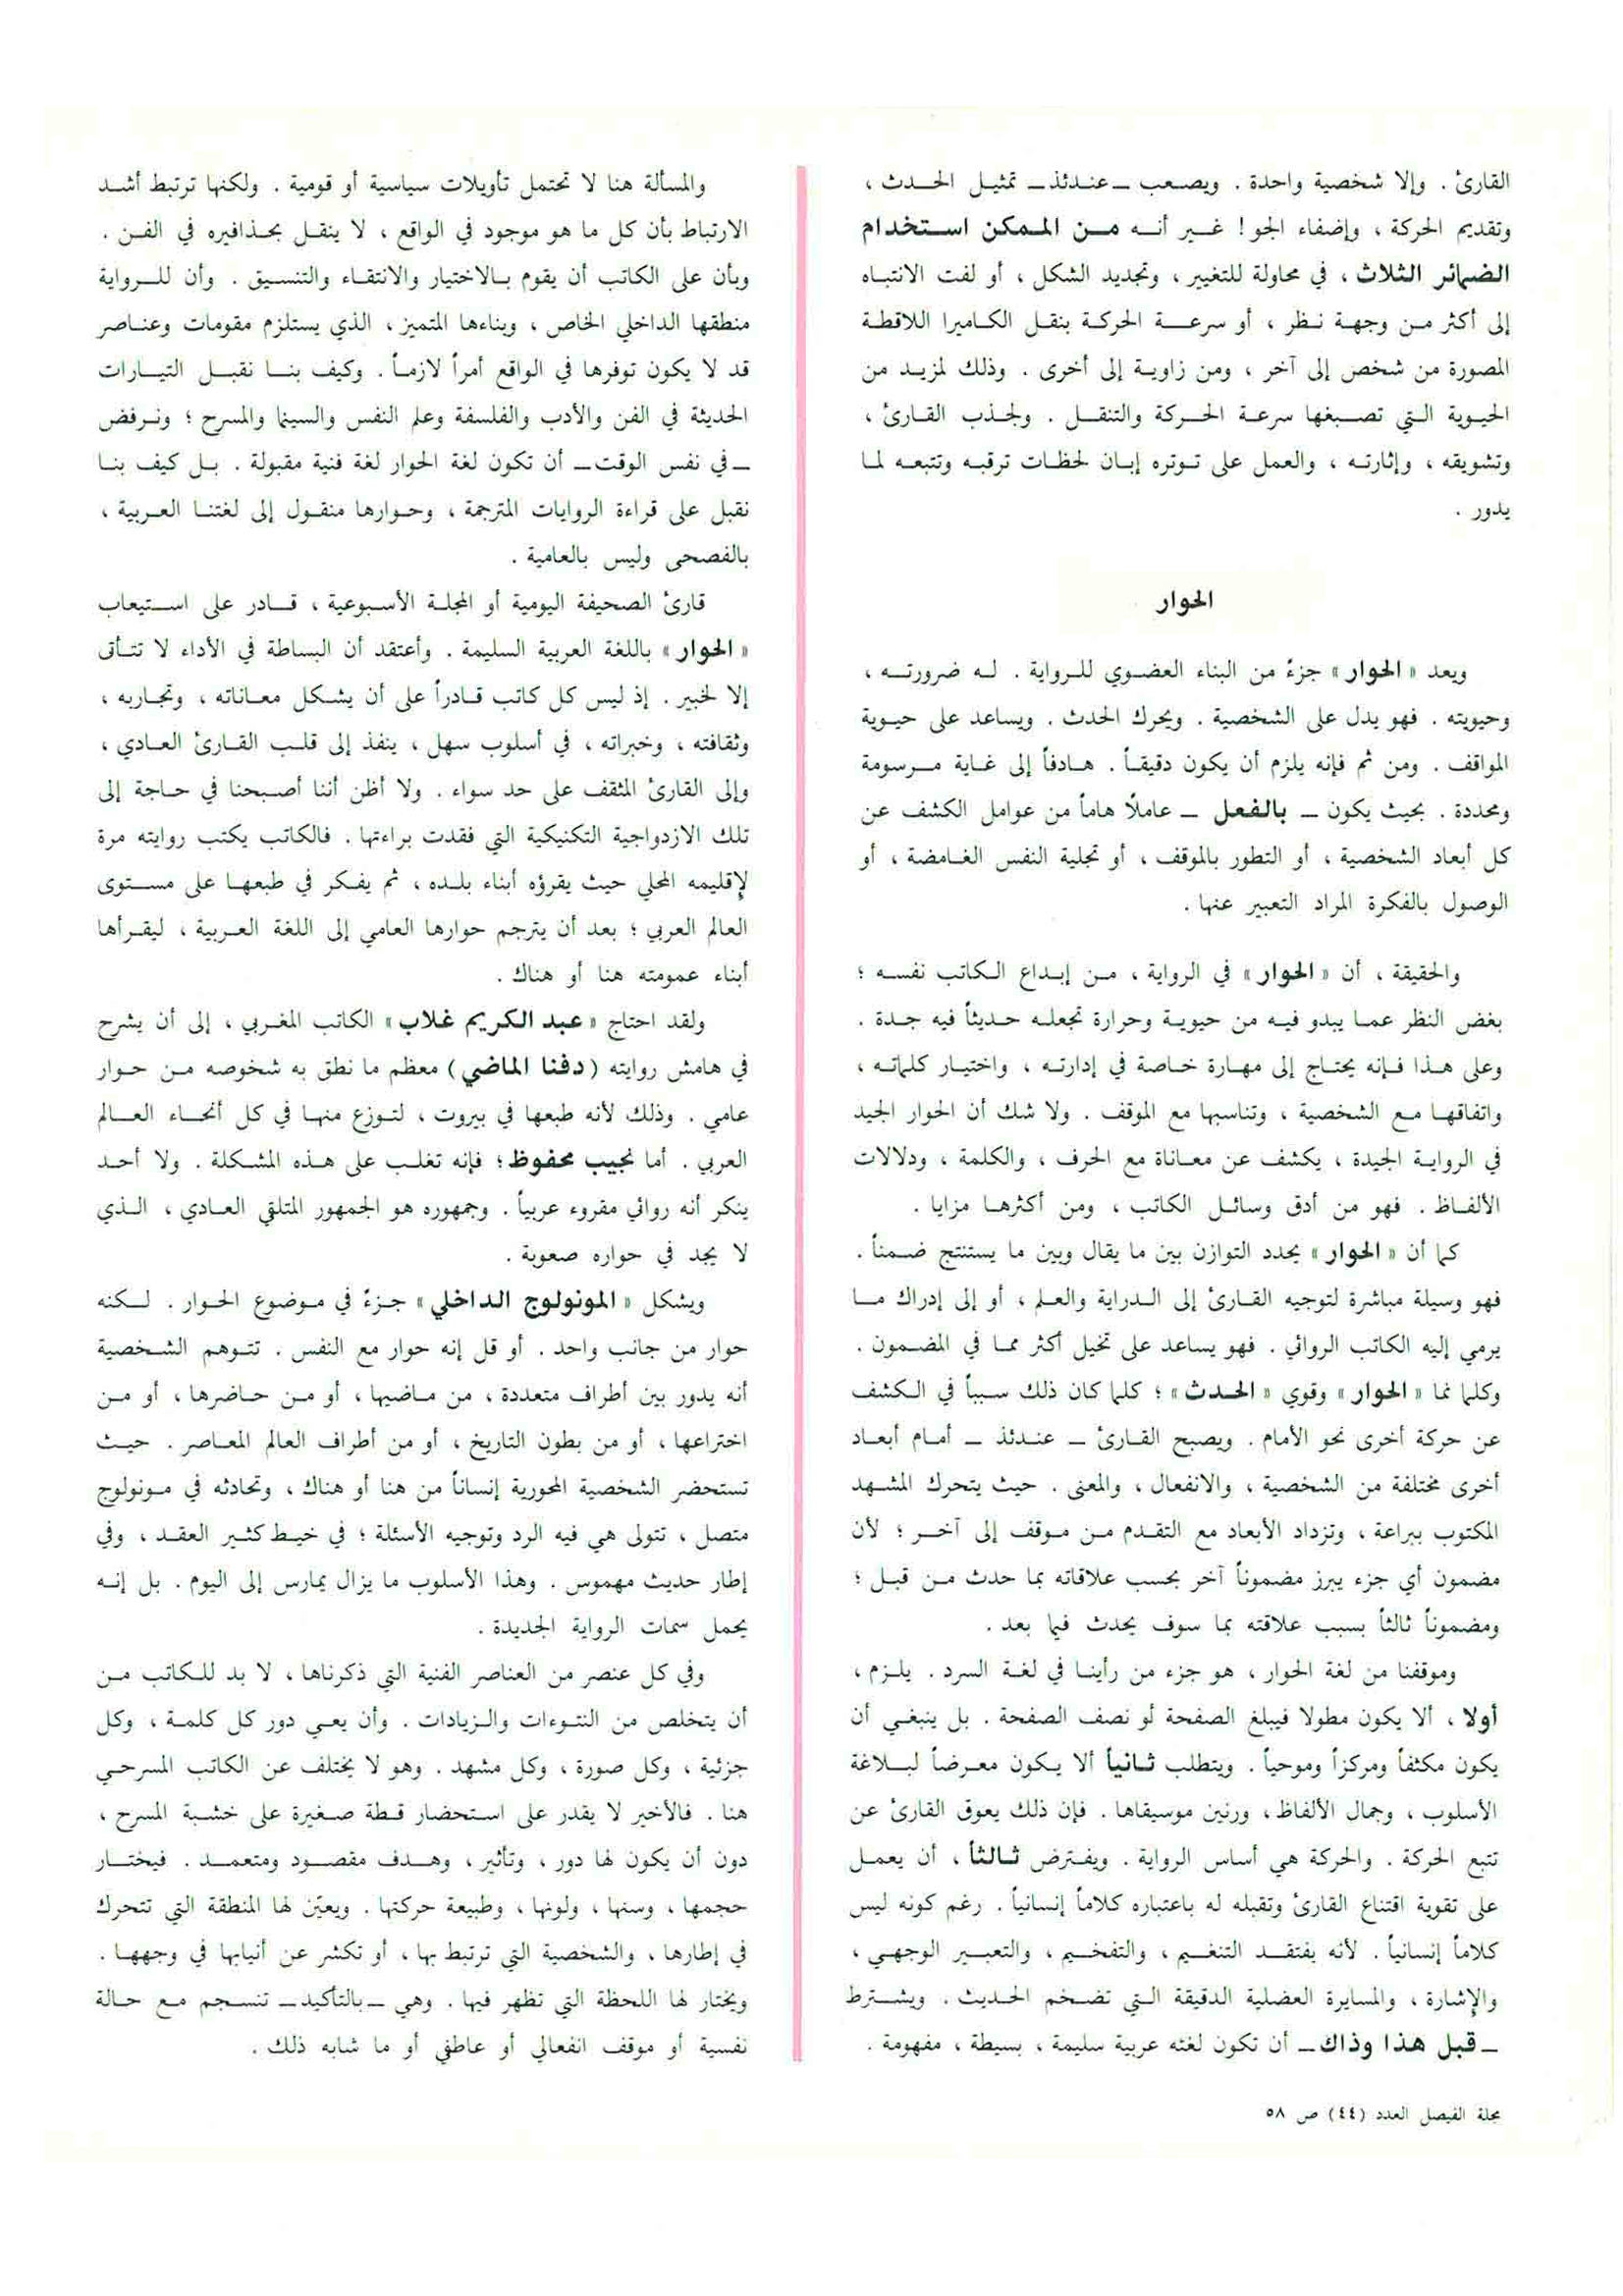 القارئ . وإلا شخصية واحدة . ويصعب ـ عندئذ ـ تمثيل الحدث ،
وتقديم الحركة ، وإضفاء الجو ! غير أنه من الممكن استخدام
الضمائر الثلاث ، في محاولة للتغيير ، وتجديد الشكل ، أو لفت الانتباه
إلى أكثر من وجهة نظر ، أو سرعة الحركة بنقل الكاميرا اللاقطة
المصورة من شخص إلى آخر ، ومن زاوية إلى أخرى . وذلك لمزيد من
الحيوية التي تصبغها سرعة الحركة والتنقل . ولجذب القارئ ،
وتشويقه ، وإثارته ، والعمل على توتره إبان لحظات ترقبه وتتبعه لما
يدور .
الحوار
ويعد « الحوار » جزءً من البناء العضوي للرواية . له ضرورته ،
وحيويته . فهو يدل على الشخصية . ويحرك الحدث . ويساعد على حيوية
المواقف . ومن ثم فإنه يلزم أن يكون دقيقاً . هادفاً إلى غاية مرسومة
ومحددة . بحيث يكون ـ بالفعل ـ عاملًا هاماً من عوامل الكشف عن
كل أبعاد الشخصية ، أو التطور بالموقف ، أو تجلية النفس الغامضة ، أو
الوصول بالفكرة المراد التعبير عنها .
والحقيقة ، أن « الحوار » في الرواية ، من إبداع الكاتب نفسه ؛
بغض النظر عما يبدو فيه من حيوية وحرارة تجعله حديثاً فيه جدة .
وعلى هذا فإنه يحتاج إلى مهارة خاصة في إدارته ، واختيار كلماته ،
واتفاقها مع الشخصية ، وتناسبها مع الموقف . ولا شك أن الحوار الجيد
في الرواية الجيدة ، يكشف عن معاناة مع الحرف ، والكلمة ، ودلالات
الألفاظ . فهو من أدق وسائل الكاتب ، ومن أكثرها مزايا .
كما أن « الحوار » يحدد التوازن بين ما يقال وبين ما يستنتج ضمناً .
فهو وسيلة مباشرة لتوجيه القارئ إلى الدراية والعلم ، أو إلى إدراك ما
يرمي إليه الكاتب الروائي . فهو يساعد على تخيل أكثر مما في المضمون .
وكلما نما « الحوار » وقوي « الحدث » ؛ كلما كان ذلك سبباً في الكشف
عن حركة أخرى نحو الأمام . ويصبح القارئ ـ عندئذ ـ أمام أبعاد
أخرى مختلفة من الشخصية ، والانفعال ، والمعنى . حيث يتحرك المشهد
المكتوب ببراعة ، وتزداد الأبعاد مع التقدم من موقف إلى آخر ؛ لأن
مضمون أي جزء يبرز مضموناً آخر بحسب علاقاته بما حدث من قبل ؛
ومضموناً ثالثاً بسبب علاقته بما سوف يحدث فيما بعد .
وموقفنا من لغة الحوار ، هو جزء من رأينا في لغة السرد . يلزم ،
أولا ، ألا يكون مطولا فيبلغ الصفحة لو نصف الصفحة . بل ينبغي أن
يكون مكثفاً ومركزاً وموحياً . ويتطلب ثانياً ألا يكون معرضاً لبلاغة
الأسلوب ، وجمال الألفاظ ، ورنين موسيقاها . فإن ذلك يعوق القارئ عن
تتبع الحركة . والحركة هي أساس الرواية . ويفترض ثالثاً ، أن يعمل
على تقوية اقتناع القارئ وتقبله له باعتباره كلاماً إنسانياً . رغم كونه ليس
كلاماً إنسانياً . لأنه يفتقد التنغيم ، والتفخيم ، والتعبير الوجهي ،
والإشارة ، والمسايرة العضلية الدقيقة التي تضخم الحديث . ويشترط
ـ قبل هذا وذاك ـ أن تكون لغته عربية سليمة ، بسيطة ، مفهومة .
والمسألة هنا لا تحتمل تأويلات سياسية أو قومية . ولكنها ترتبط أشد
الارتباط بأن كل ما هو موجود في الواقع ، لا ينقل بحذافيره في الفن .
وبأن على الكاتب أن يقوم بالاختيار والانتقاء والتنسيق . وأن للرواية
منطقها الداخلي الخاص ، وبناءها المتميز ، الذي يستلزم مقومات وعناصر
قد لا يكون توفرها في الواقع أمراً لازماً . وكيف بنا نقبل التيارات
الحديثة في الفن والأدب والفلسفة وعلم النفس والسينما والمسرح ؛ ونرفض
ـ في نفس الوقت ـ أن تكون لغة الحوار لغة فنية مقبولة . بل كيف بنا
نقبل على قراءة الروايات المترجمة ، وحوارها منقول إلى لغتنا العربية ،
بالفصحى وليس بالعامية .
قارئ الصحيفة اليومية أو المجلة الأسبوعية ، قادر على استيعاب
« الحوار » باللغة العربية السليمة . وأعتقد أن البساطة في الأداء لا تتأتى
إلا لخبير . إذ ليس كل كاتب قادراً على أن يشكل معاناته ، وتجاربه ،
وثقافته ، وخبراته ، في أسلوب سهل ، ينفذ إلى قلب القارئ العادي ،
وإلى القارئ المثقف على حد سواء . ولا أظن أننا أصبحنا في حاجة إلى
تلك الازدواجية التكنيكية التي فقدت براءتها . فالكاتب يكتب روايته مرة
لإقليمه المحلي حيث يقرؤه أبناء بلده ، ثم يفكر في طبعها على مستوى
العالم العربي ؛ بعد أن يترجم حوارها العامي إلى اللغة العربية ، ليقرأها
أبناء عمومته هنا أو هناك .
ولقد احتاج « عبد الكريم غلاب » الكاتب المغربي ، إلى أن يشرح
في هامش روايته ( دفنا الماضي ) معظم ما نطق به شخوصه من حوار
عامي . وذلك لأنه طبعها في بيروت ، لتوزع منها في كل أنحاء العالم
العربي . أما نجيب محفوظ ؛ فإنه تغلب على هذه المشكلة . ولا أحد
ينكر أنه روائي مقروء عربياً . وجمهوره هو الجمهور المتلقي العادي ، الذي
لا يجد في حواره صعوبة .
ويشكل « المونولوج الداخلي » جزءً في موضوع الحوار . لكنه
حوار من جانب واحد . أو قل إنه حوار مع النفس . تتوهم الشخصية
أنه يدور بين أطراف متعددة ، من ماضيها ، أو من حاضرها ، أو من
اختراعها ، أو من بطون التاريخ ، أو من أطراف العالم المعاصر . حيث
تستحضر الشخصية المحورية إنساناً من هنا أو هناك ، وتحادثه في مونولوج
متصل ، تتولى هي فيه الرد وتوجيه الأسئلة ؛ في خيط كثير العقد ، وفي
إطار حديث مهموس . وهذا الأسلوب ما يزال يمارس إلى اليوم . بل إنه
يحمل سمات الرواية الجديدة .
وفي كل عنصر من العناصر الفنية التي ذكرناها ، لا بد للكاتب من
أن يتخلص من النتوءات والزيادات . وأن يعي دور كل كلمة ، وكل
جزئية ، وكل صورة ، وكل مشهد . وهو لا يختلف عن الكاتب المسرحي
هنا . فالأخير لا يقدر على استحضار قطة صغيرة على خشبة المسرح ،
دون أن يكون لها دور ، وتأثير ، وهدف مقصود ومتعمد . فيختار
حجمها ، وسنها ، ولونها ، وطبيعة حركتها . ويعيّن لها المنطقة التي تتحرك
في إطارها ، والشخصية التي ترتبط بها ، أو تكشر عن أنيابها في وجهها .
ويختار لها اللحظة التي تظهر فيها . وهي ـ بالتأكيد ـ تنسجم مع حالة
نفسية أو موقف انفعالي أو عاطفي أو ما شابه ذلك .
مجلة الفيصل العدد (٤٤) ص ٥٨